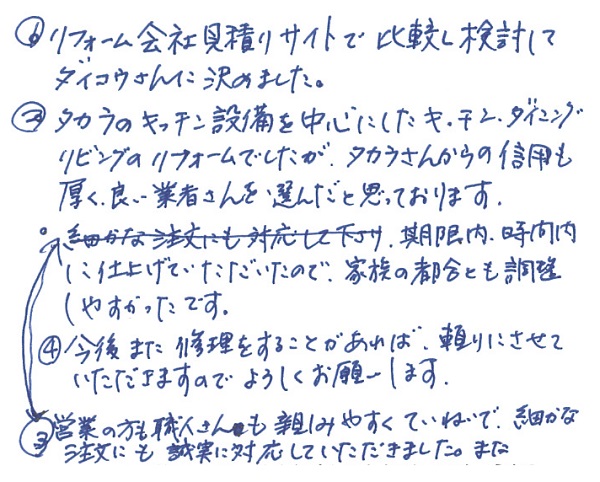 ① リフォーム会社見積りサイトで比較し検討して
ダイコウさんに決めました。
② タカラのキッチン設備を中心にしたキッチン、ダイニング
リビングのリフォームでしたが、タカラさんからの信用も
厚く、良い業者さんを選んだと思っております。
細かな注文にも対応して下り、期限内、時間内
に仕上げていただいたので、家族の都合とも調整
しやすかったです。
④ 今後また修理をすることがあれば、頼りにさせて
いただきますのでよろしくお願いします。
③ 営業の方も職人さんも親しみやすくていねいで、細かな
注文にも誠実に対応していただきました。また